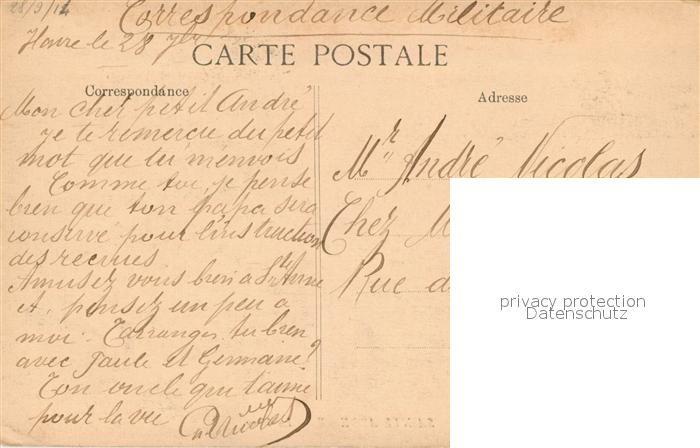 28/9/14
Correspondance Militaire
Havre le 28 7bre
CARTE POSTALE
Correspondance
Mon cher petit André
je te remercie du petit
mot que tu m'envois
Comme toi, je pense
bien que ton papa sera
conservé pour l'instruction
des recrues
Amusez vous bien à Ste Anne
et, pensez un peu a
moi. T'arranges tu bien
avec Paule et Germane?
Ton oncle qui t'aime
pour la vie
Nicolas
Adresse
Mr André Nicolas
Chez M
Rue d
privacy protection
Datenschutz